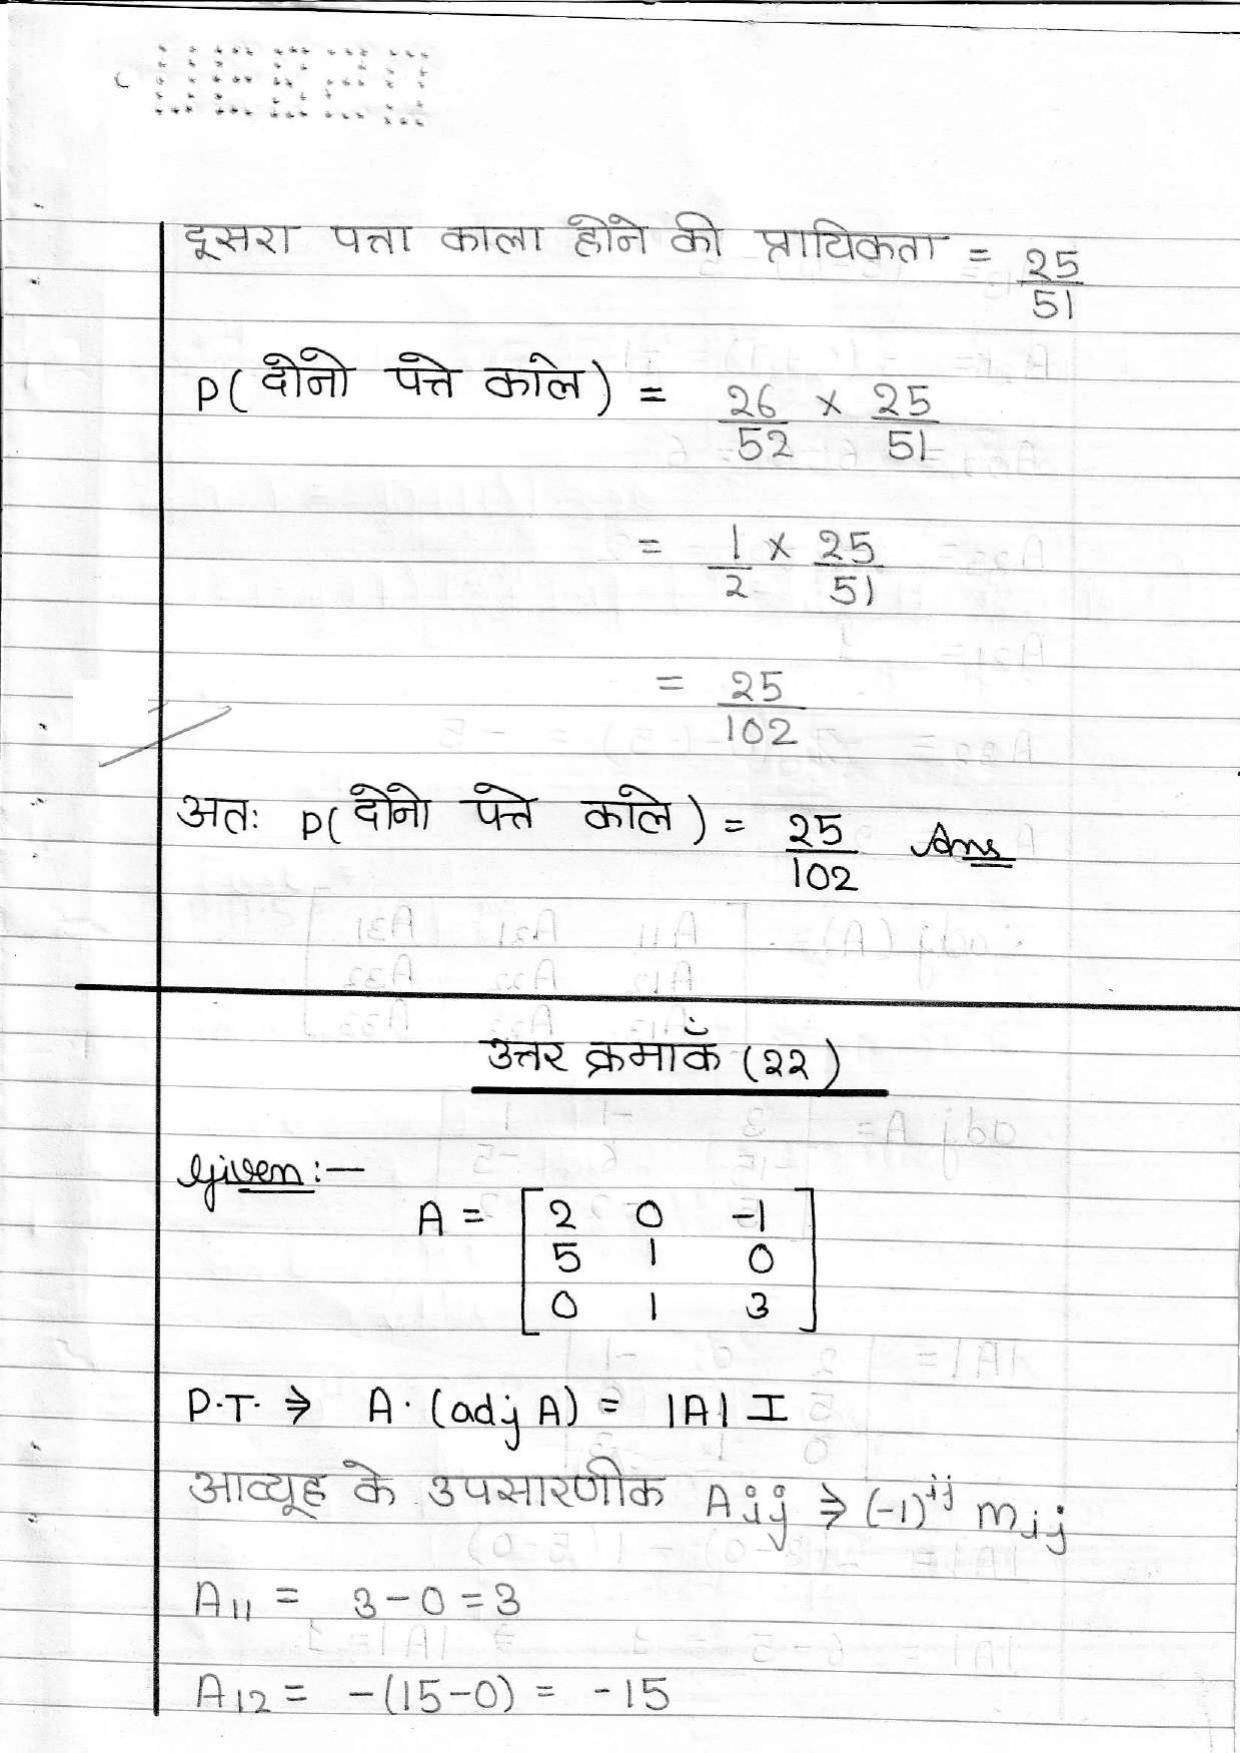 दूसरा पत्ता काला होने की प्रायिकता = 25/51
P( दोनो पत्ते काले ) = 26/52 × 25/51
= 1/2 × 25/51
= 25/102
अतः P( दोनो पत्ते काले ) = 25/102 Ans
उत्तर क्रमाकँ (22)
Given :—
A = [ 2 0 -1
5 1 0
0 1 3 ]
P.T. ⇒ A. (adj A) = |A| I
आव्यूह के उपसारणीक Aij ⇒ (-1)^ij mij
A11 = 3 - 0 = 3
A12 = -(15-0) = -15